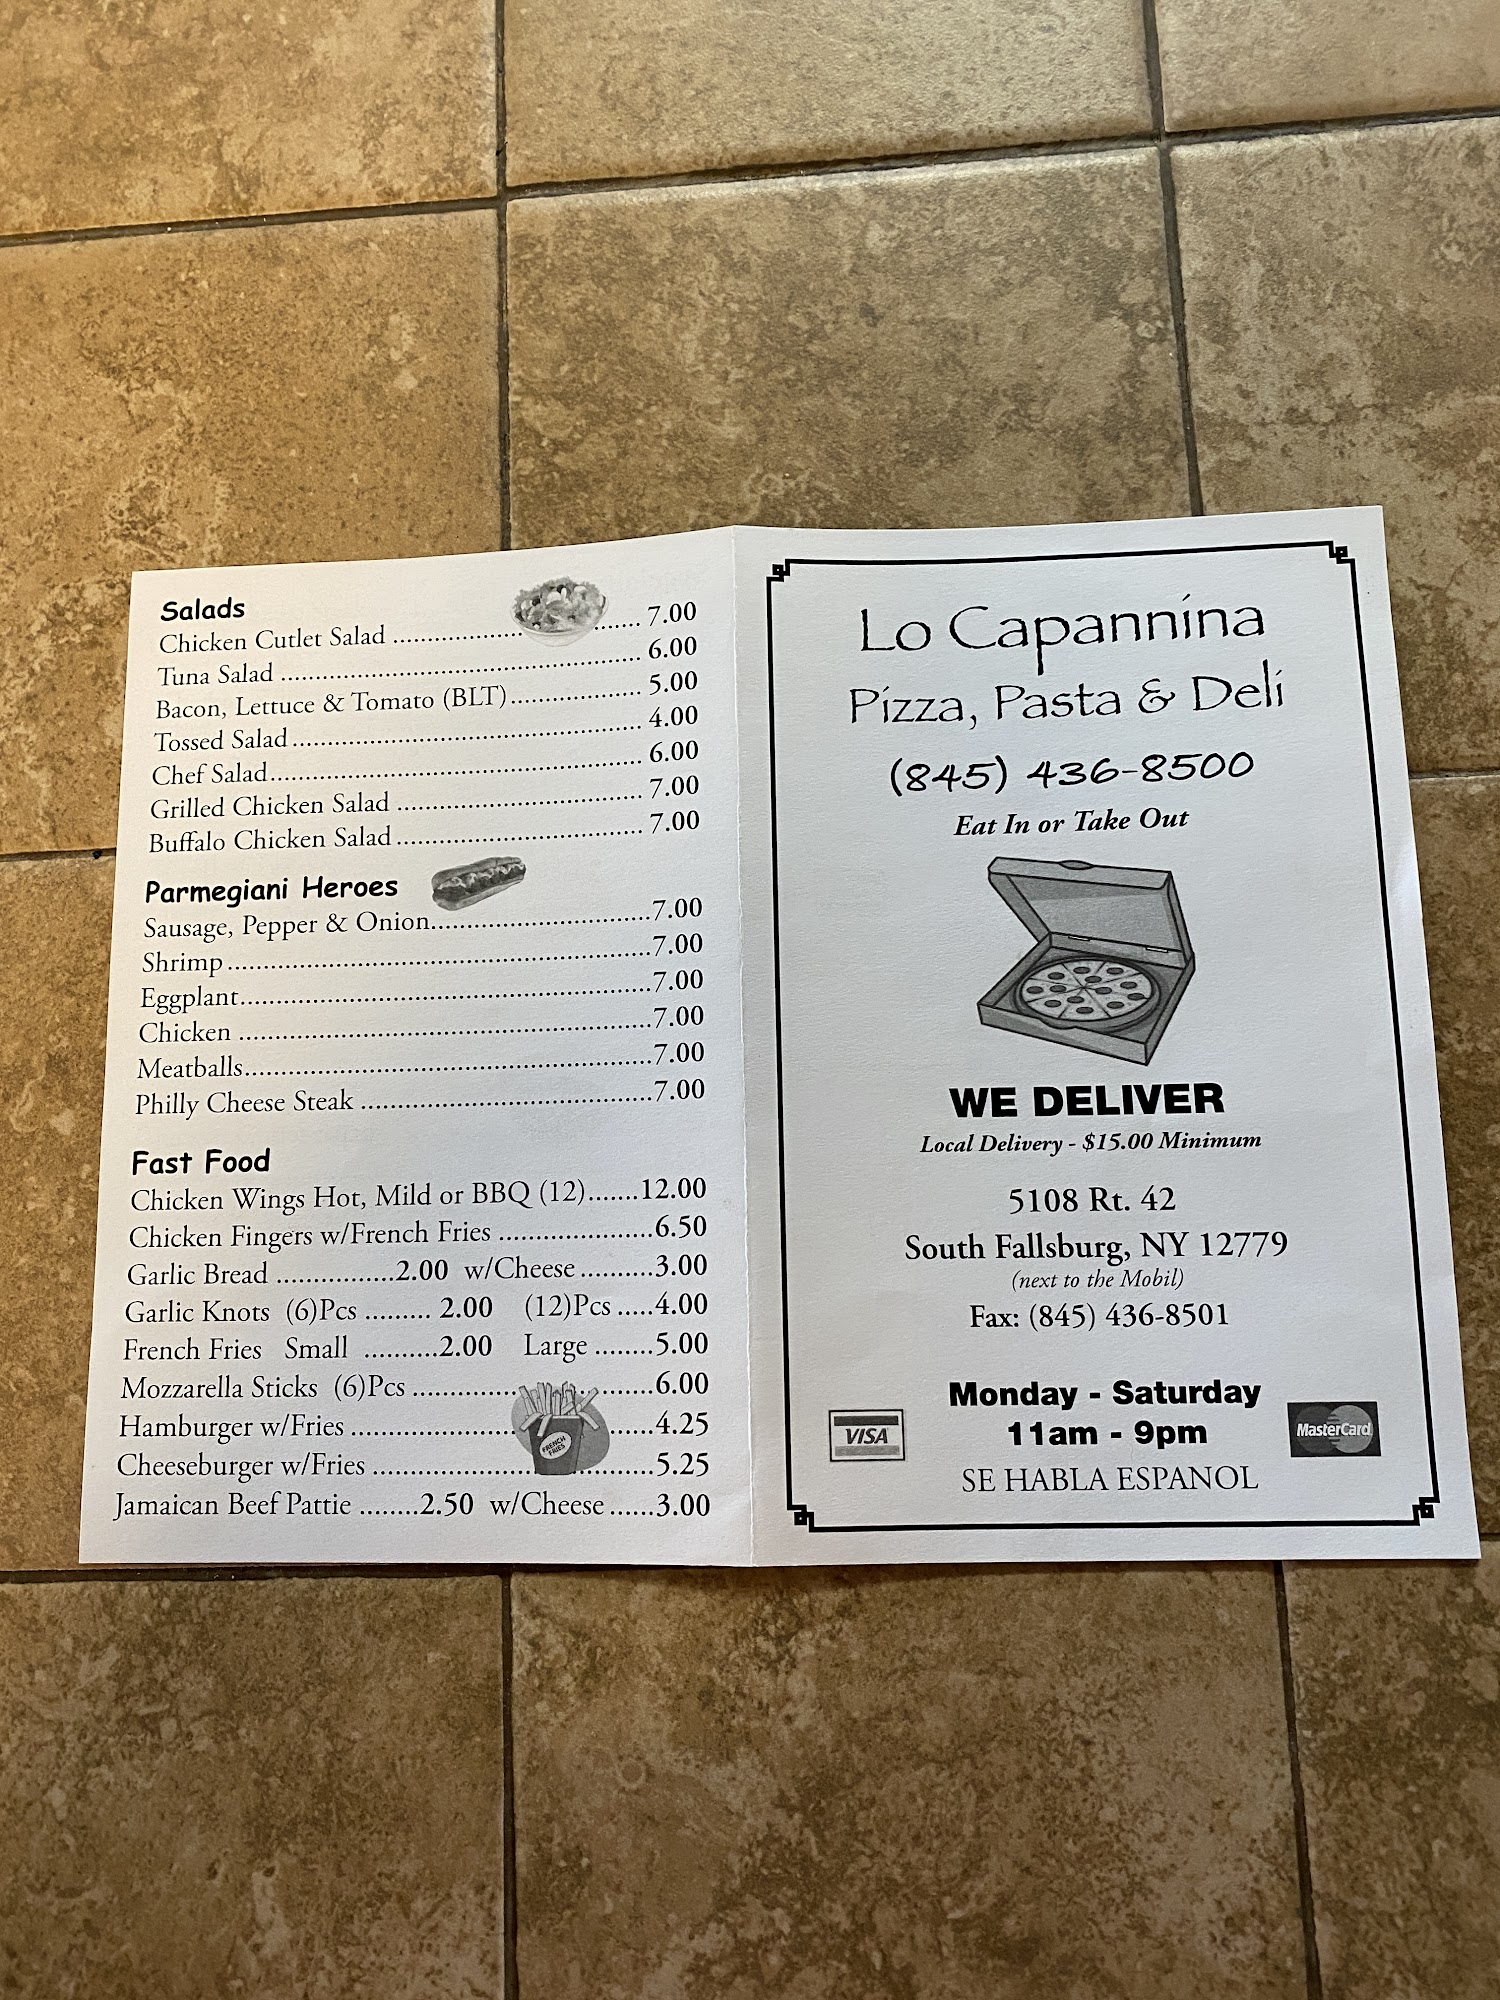 Salads
Chicken Cutlet Salad ........................ 7.00
Tuna Salad ........................ 6.00
Bacon, Lettuce & Tomato (BLT)........................ 5.00
Tossed Salad........................ 4.00
Chef Salad........................ 6.00
Grilled Chicken Salad ........................ 7.00
Buffalo Chicken Salad........................ 7.00
Parmegiani Heroes
Sausage, Pepper & Onion........................7.00
Shrimp........................7.00
Eggplant........................7.00
Chicken ........................7.00
Meatballs........................7.00
Philly Cheese Steak ........................7.00
Fast Food
Chicken Wings Hot, Mild or BBQ (12).......12.00
Chicken Fingers w/French Fries .....................6.50
Garlic Bread ................2.00 w/Cheese..........3.00
Garlic Knots (6)Pcs ......... 2.00 (12)Pcs .....4.00
French Fries Small ..........2.00 Large ........5.00
Mozzarella Sticks (6)Pcs ........................6.00
Hamburger w/Fries ........................4.25
Cheeseburger w/Fries ........................5.25
FRENCH FRIES
Jamaican Beef Pattie ........2.50 w/Cheese ......3.00
Lo Capannina
Pizza, Pasta & Deli
(845) 436-8500
Eat In or Take Out
WE DELIVER
Local Delivery - $15.00 Minimum
5108 Rt. 42
South Fallsburg, NY 12779
(next to the Mobil)
Fax: (845) 436-8501
Monday - Saturday
11am - 9pm
VISA
MasterCard
SE HABLA ESPANOL